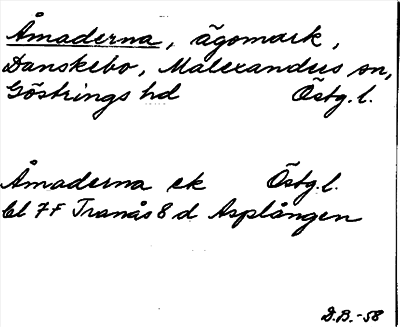 Åmaderna, ägomark,
Danskebo, Malexanders sn,
Göstrings hd Östg. l.
Åmaderna ek Östg. l.
bl 7F Tranås 8 d Asplången
D.B.-58